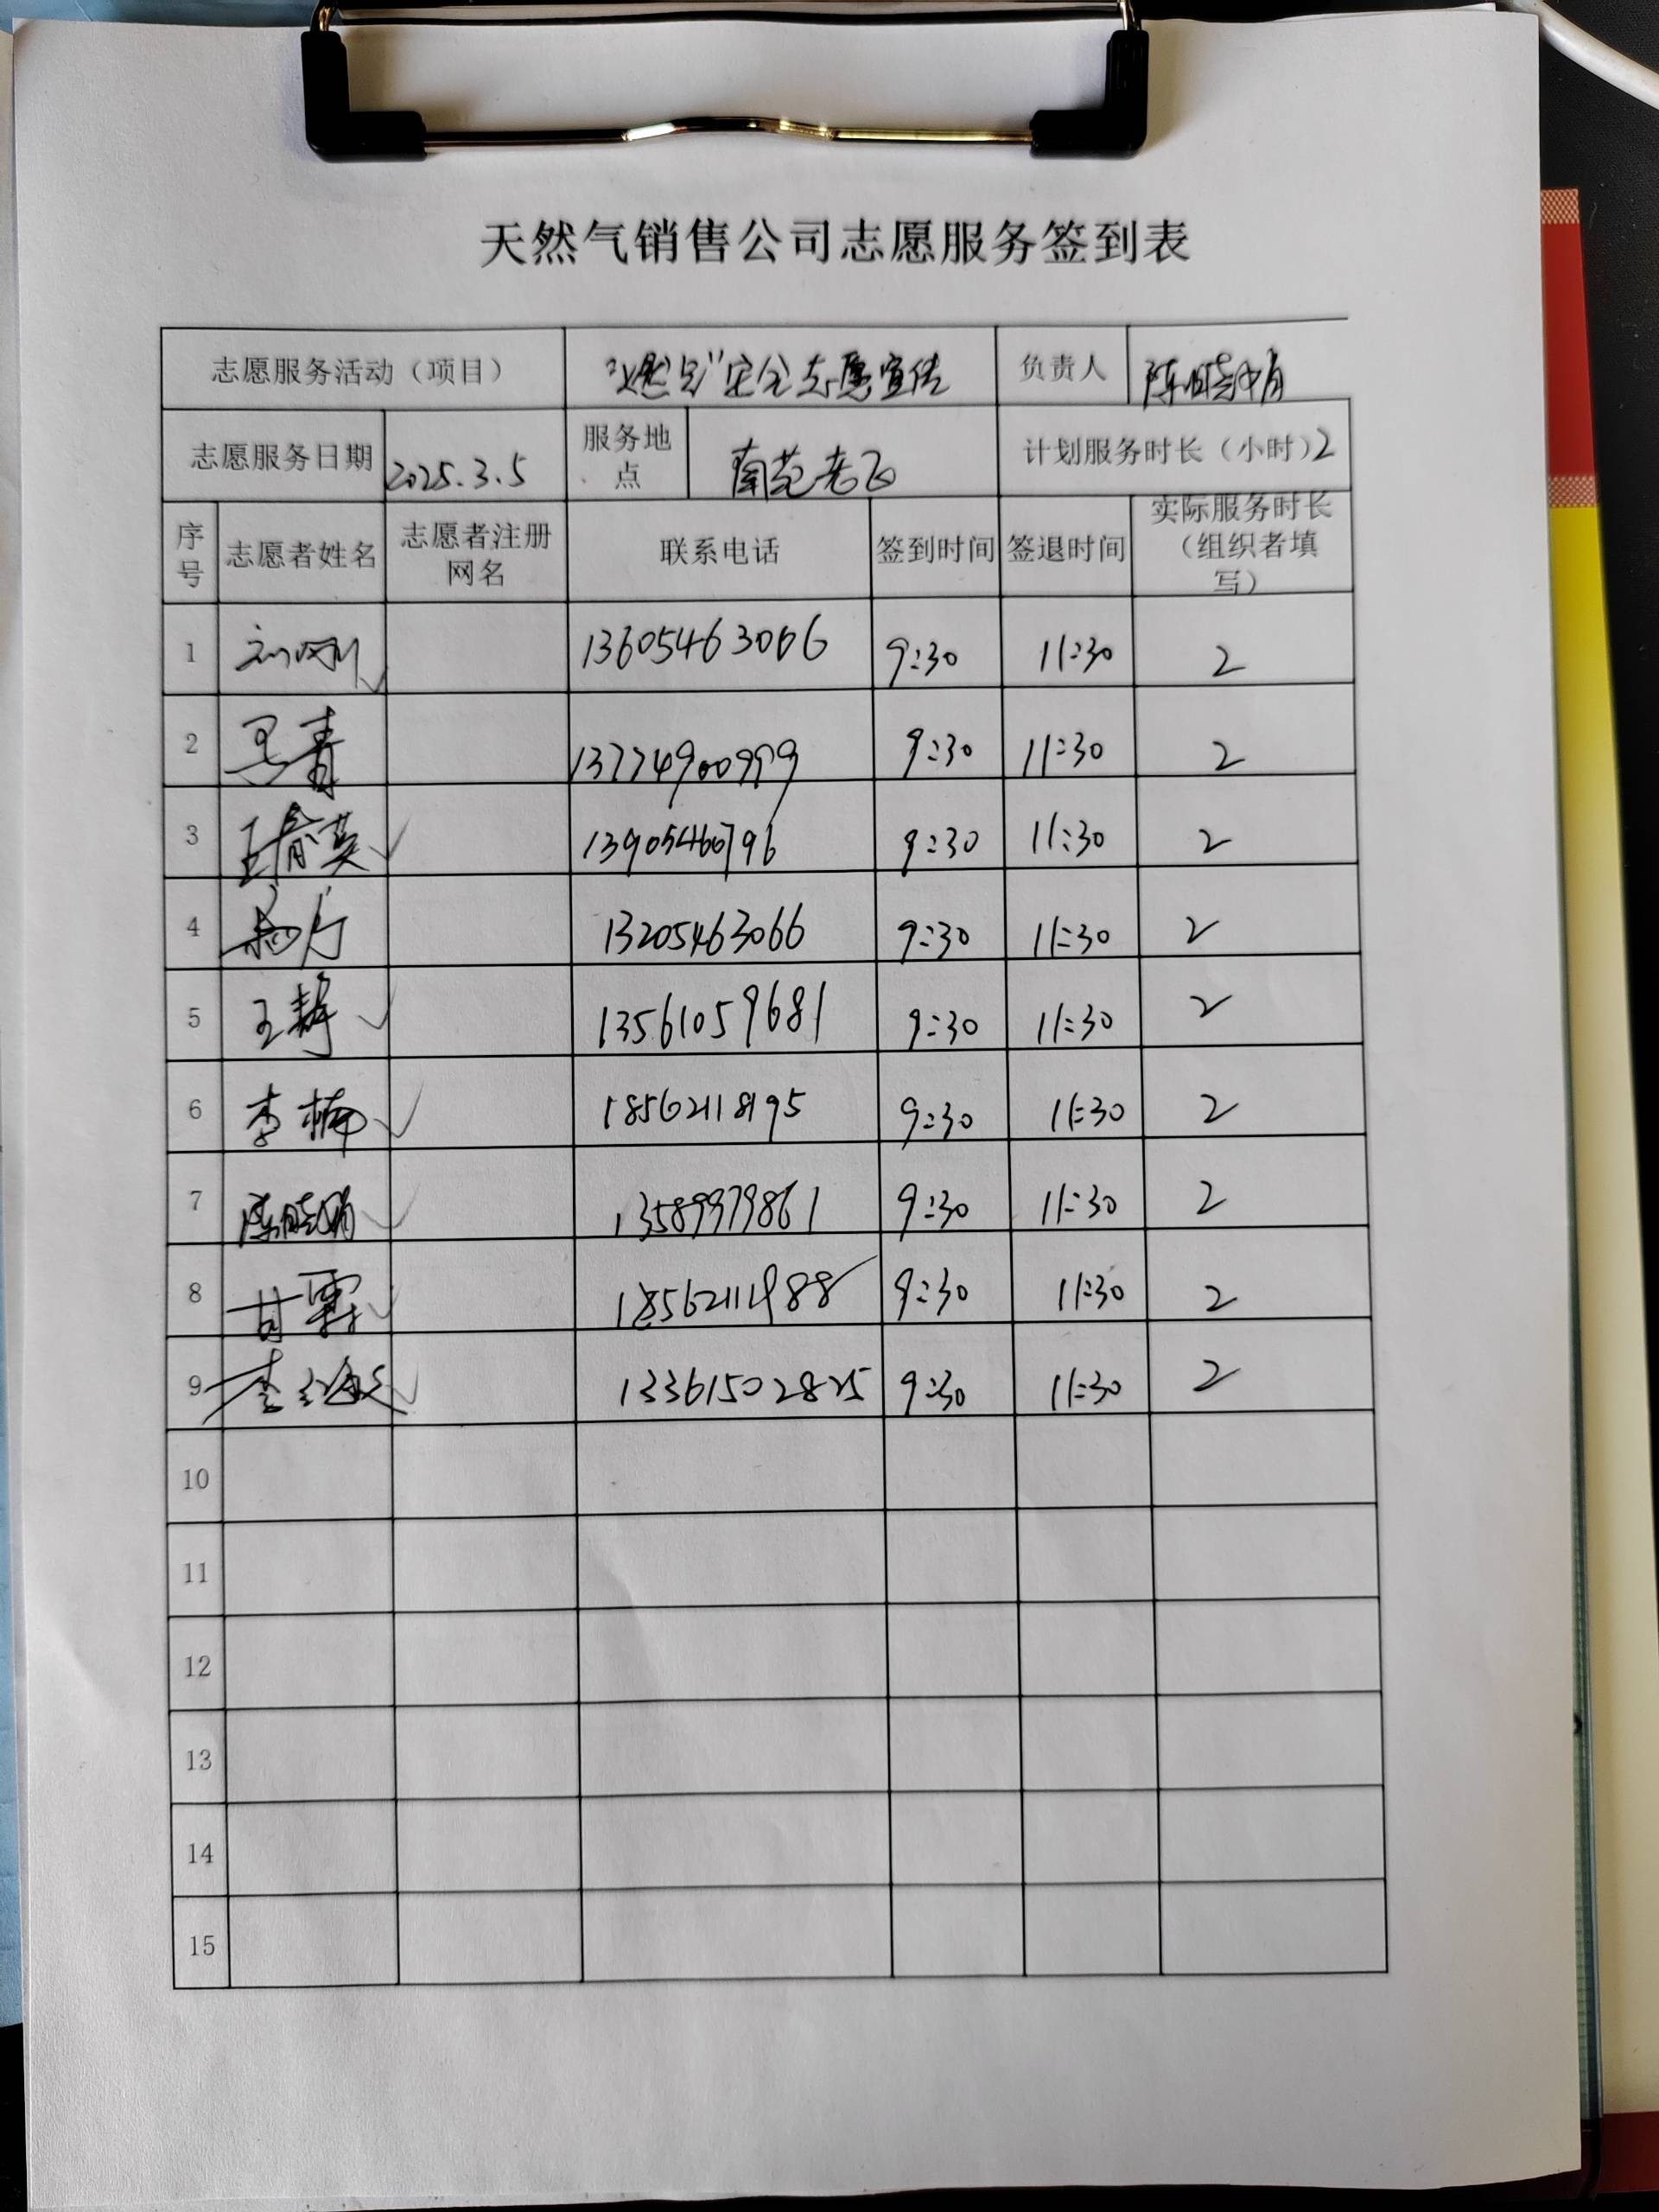 天然气销售公司志愿服务签到表
志愿服务活动（项目） "燃气"安全志愿宣传 负责人 陈晓娟
志愿服务日期 2025.3.5 服务地点 南苑老区 计划服务时长（小时）2
序号 志愿者姓名 志愿者注册网名 联系电话 签到时间 签退时间 实际服务时长（组织者填写）
1 刘刚 13605463066 9:30 11:30 2
2 青 9:30 11:30 2
3 王俞英 13905460796 9:30 11:30 2
4 13205463066 9:30 11:30 2
5 王静 13561059681 9:30 11:30 2
6 李楠 18562118195 9:30 11:30 2
7 陈晓娟 13589979861 9:30 11:30 2
8 甘霖 9:30 11:30 2
9 李 13361502825 9:30 11:30 2
10
11
12
13
14
15